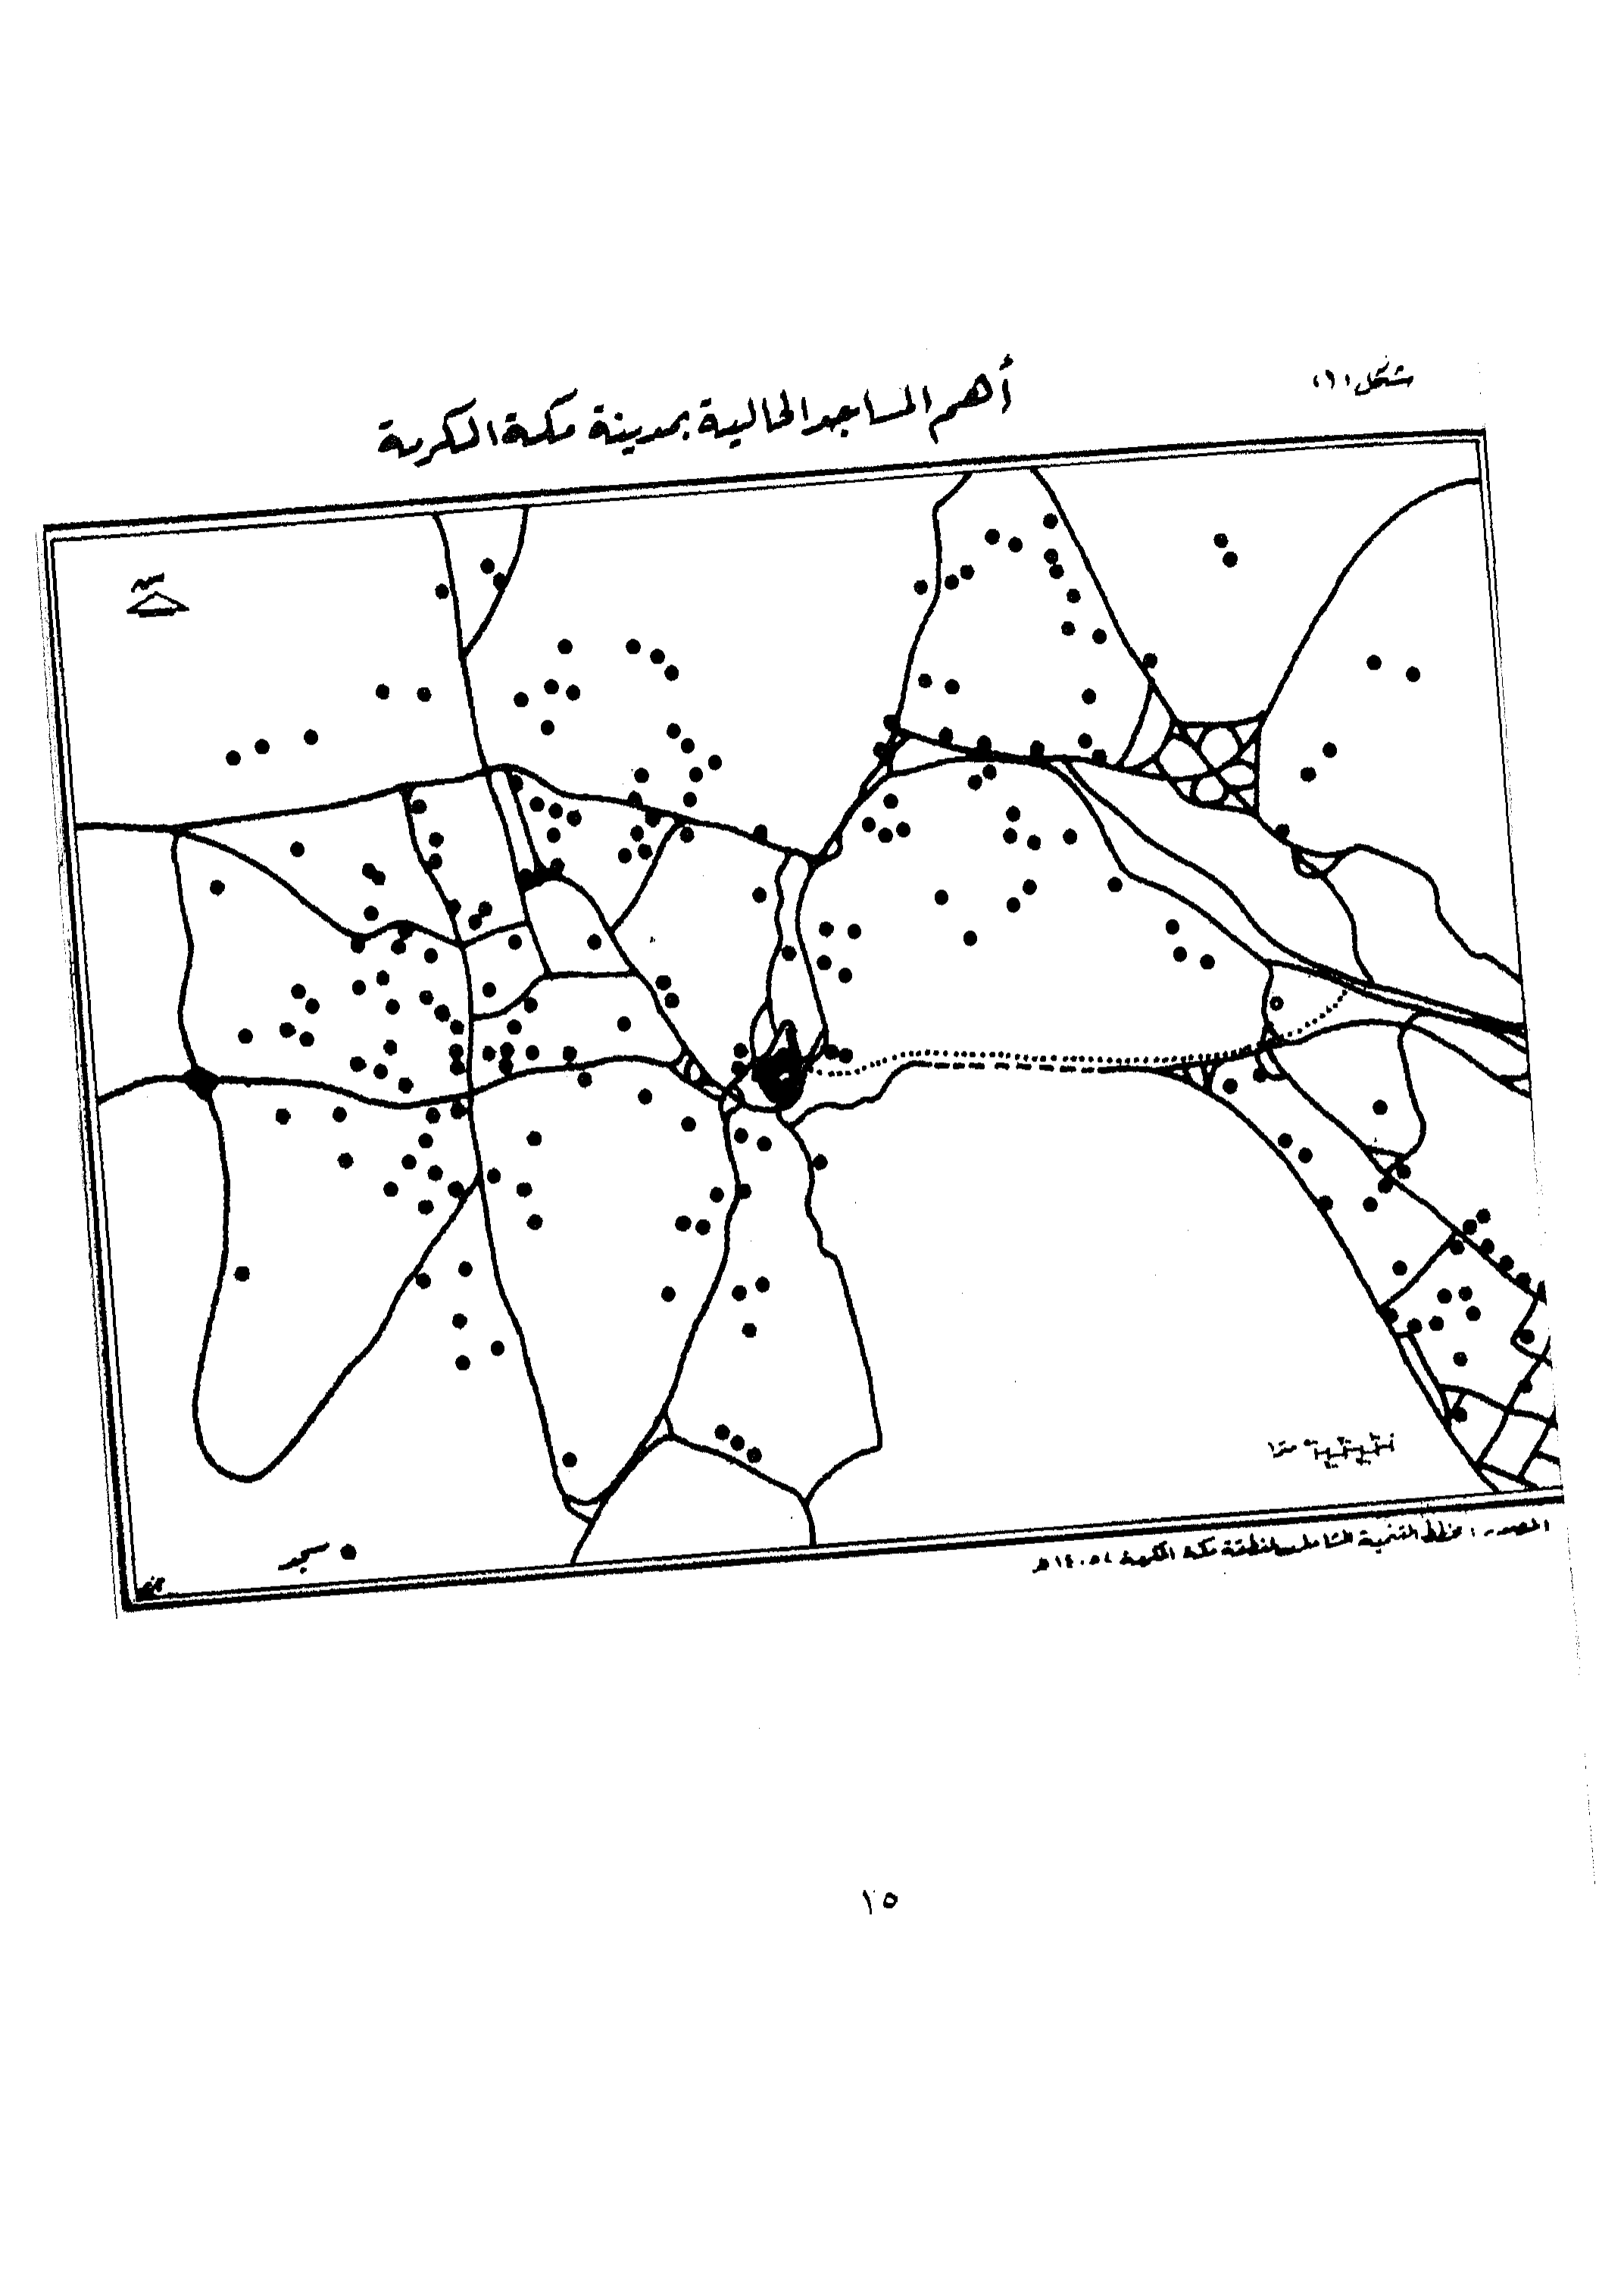 شكل (١)
أهم المساجد الحالية بمدينة مكة المكرمة
مسجد
المصدر: مخطط التنمية الشامل لمنطقة مكة المكرمة ١٤٠٥هـ
١٥